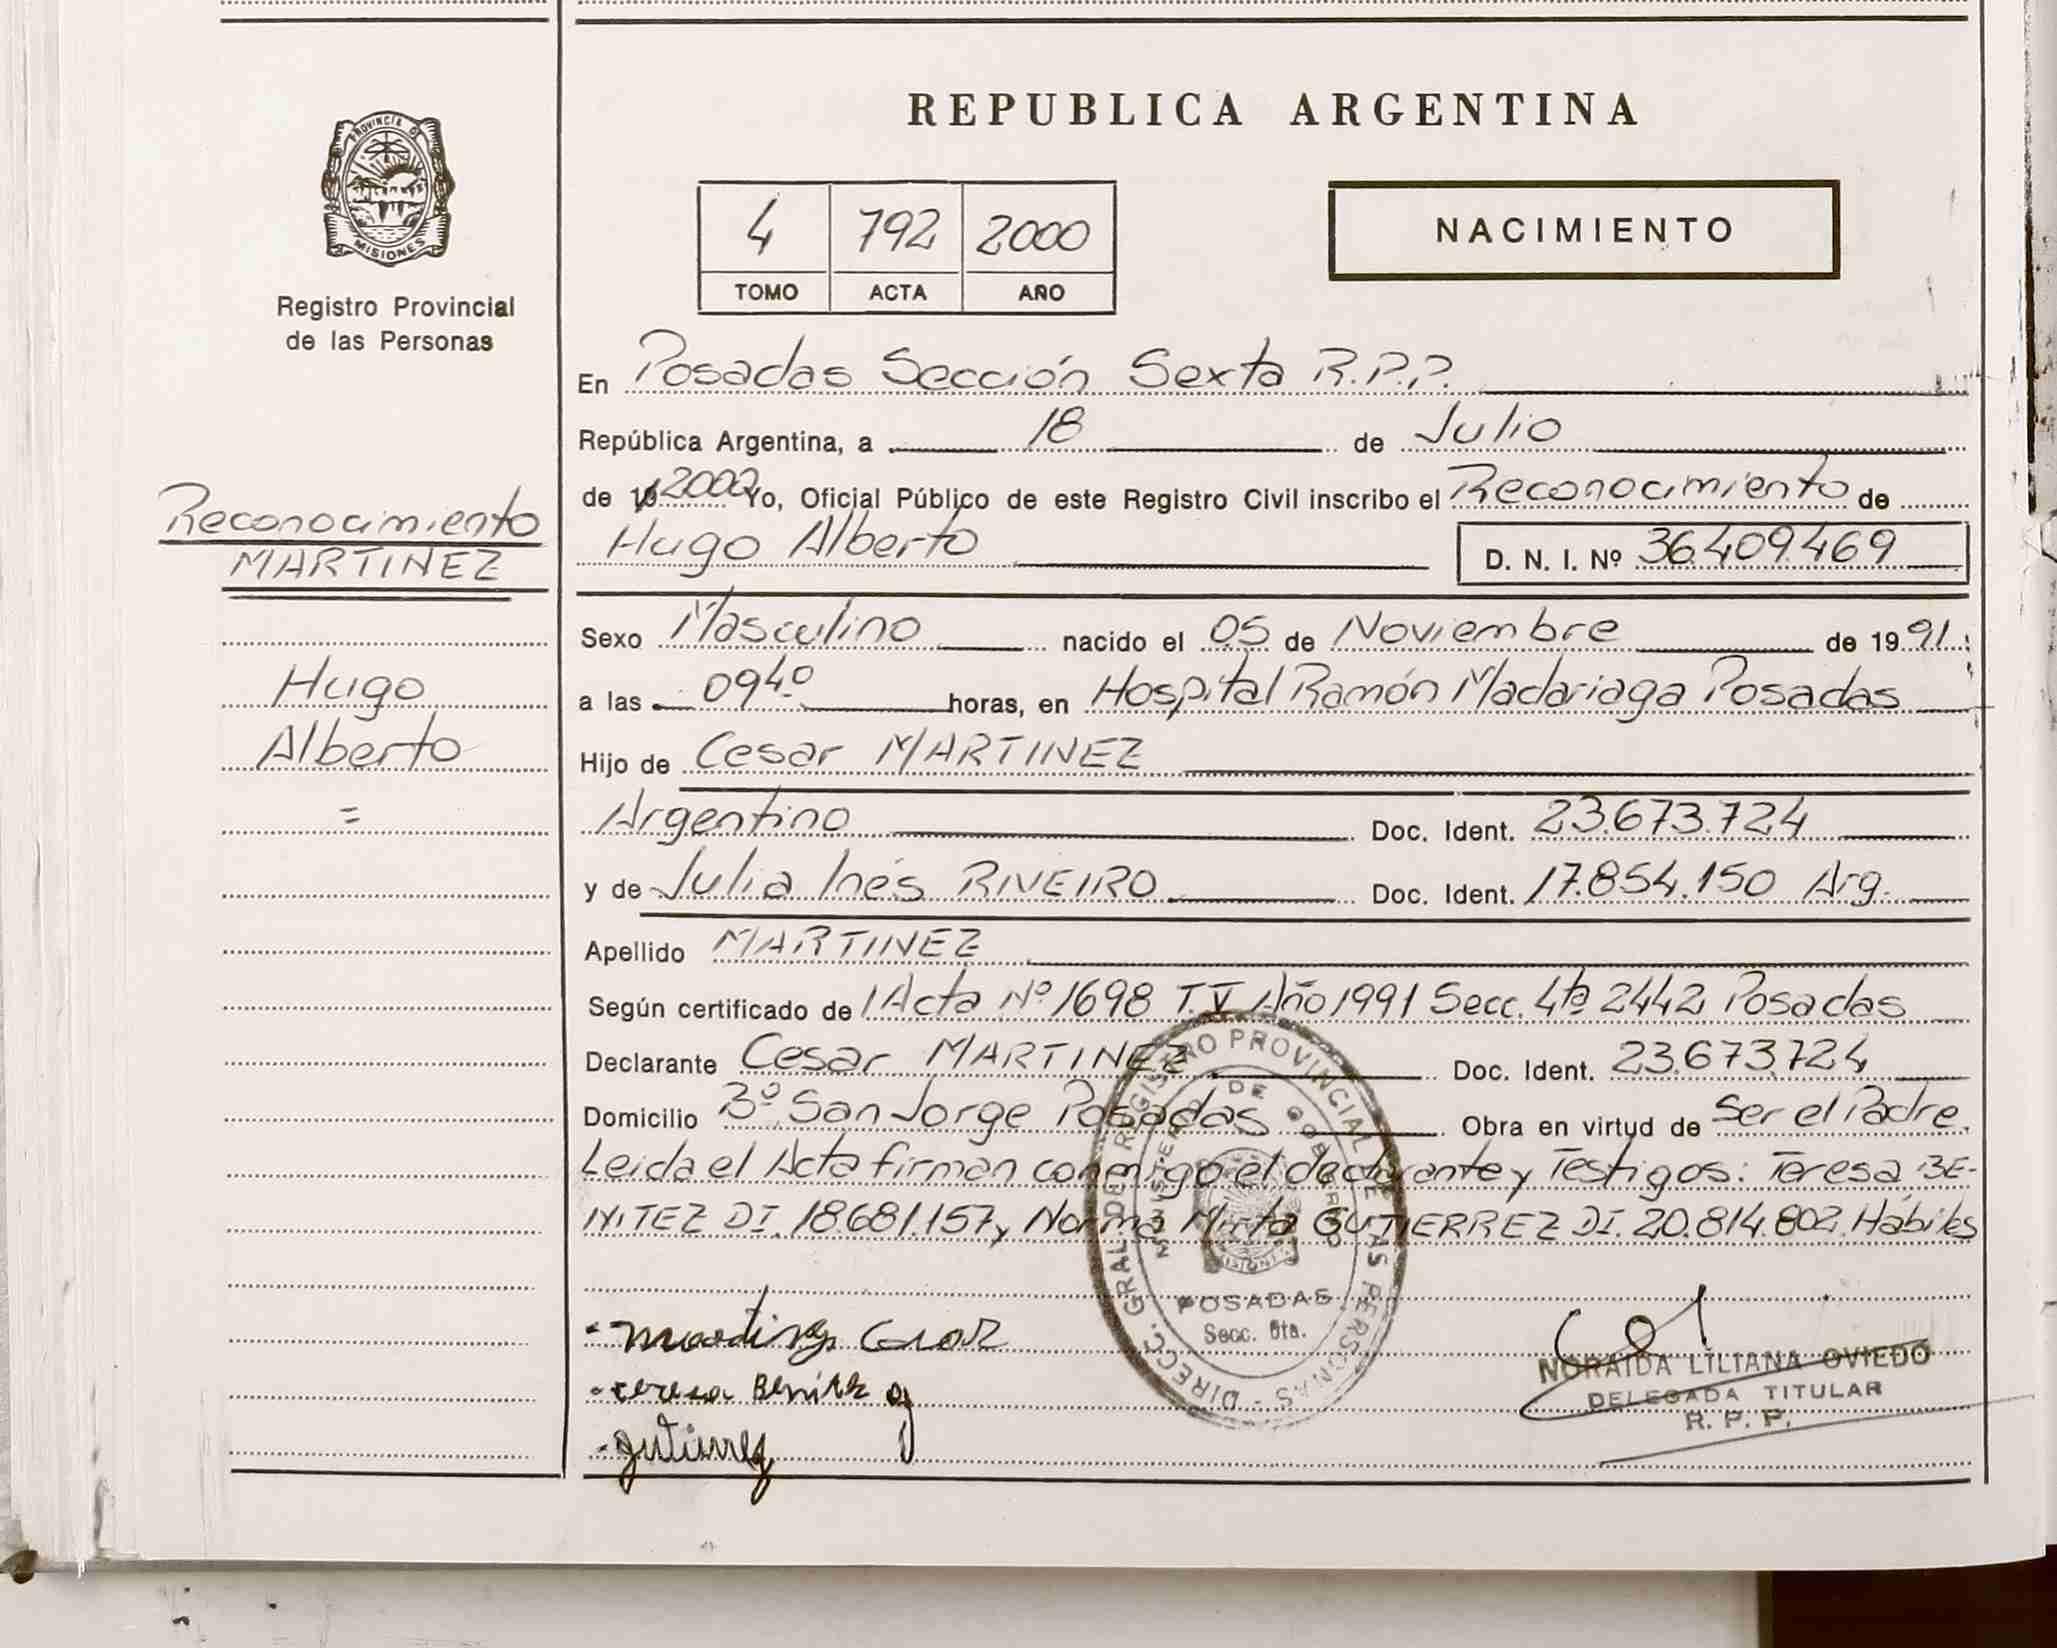 REPUBLICA ARGENTINA
PROVINCIA D
MISIONES
Registro Provincial
de las Personas
4 792 2000
TOMO ACTA AÑO
NACIMIENTO
En Posadas Sección Sexta R.P.P.
República Argentina, a 18 de Julio
de 19 2000 Yo, Oficial Público de este Registro Civil inscribo el Reconocimiento de
Hugo Alberto D. N. I. Nº 36.409.469
Reconocimiento
MARTINEZ
Hugo
Alberto
=
Sexo Masculino nacido el 05 de Noviembre de 1991
a las 0940 horas, en Hospital Ramón Madariaga Posadas
Hijo de Cesar MARTINEZ
Argentino Doc. Ident. 23.673.724
y de Julia Inés RIVEIRO Doc. Ident. 17.854.150 Arg.
Apellido MARTINEZ
Según certificado de Acta Nº 1698 T.V Año 1991 Secc. 4ta 2442 Posadas
Declarante Cesar MARTINEZ Doc. Ident. 23.673.724
Domicilio Bº San Jorge Posadas Obra en virtud de Ser el Padre.
Leida el Acta firman conmigo el declarante y Testigos: Teresa BE-
NITEZ DI. 18.681.157 y Norma Mirta GUTIERREZ DI. 20.814.802. Hábiles
DIRECC. GRAL. DE REGISTRO PROVINCIAL DE LAS PERSONAS
MINISTERIO DE GOBIERNO
POSADAS
Secc. 6ta.
teresa Benitez
gutierrez
NORAIDA LILIANA OVIEDO
DELEGADA TITULAR
R. P. P.